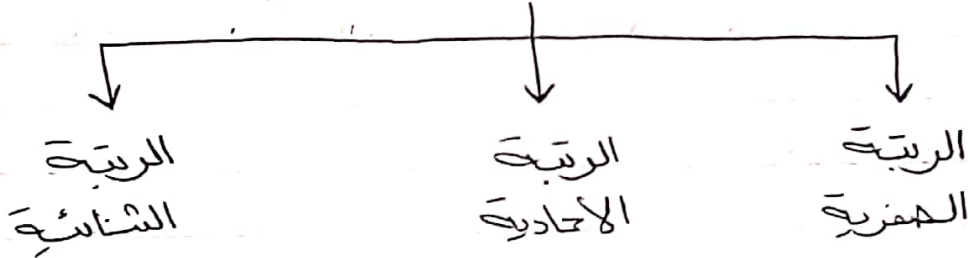 الرتبة الصفرية
الرتبة الأحادية
الرتبة الثنائية